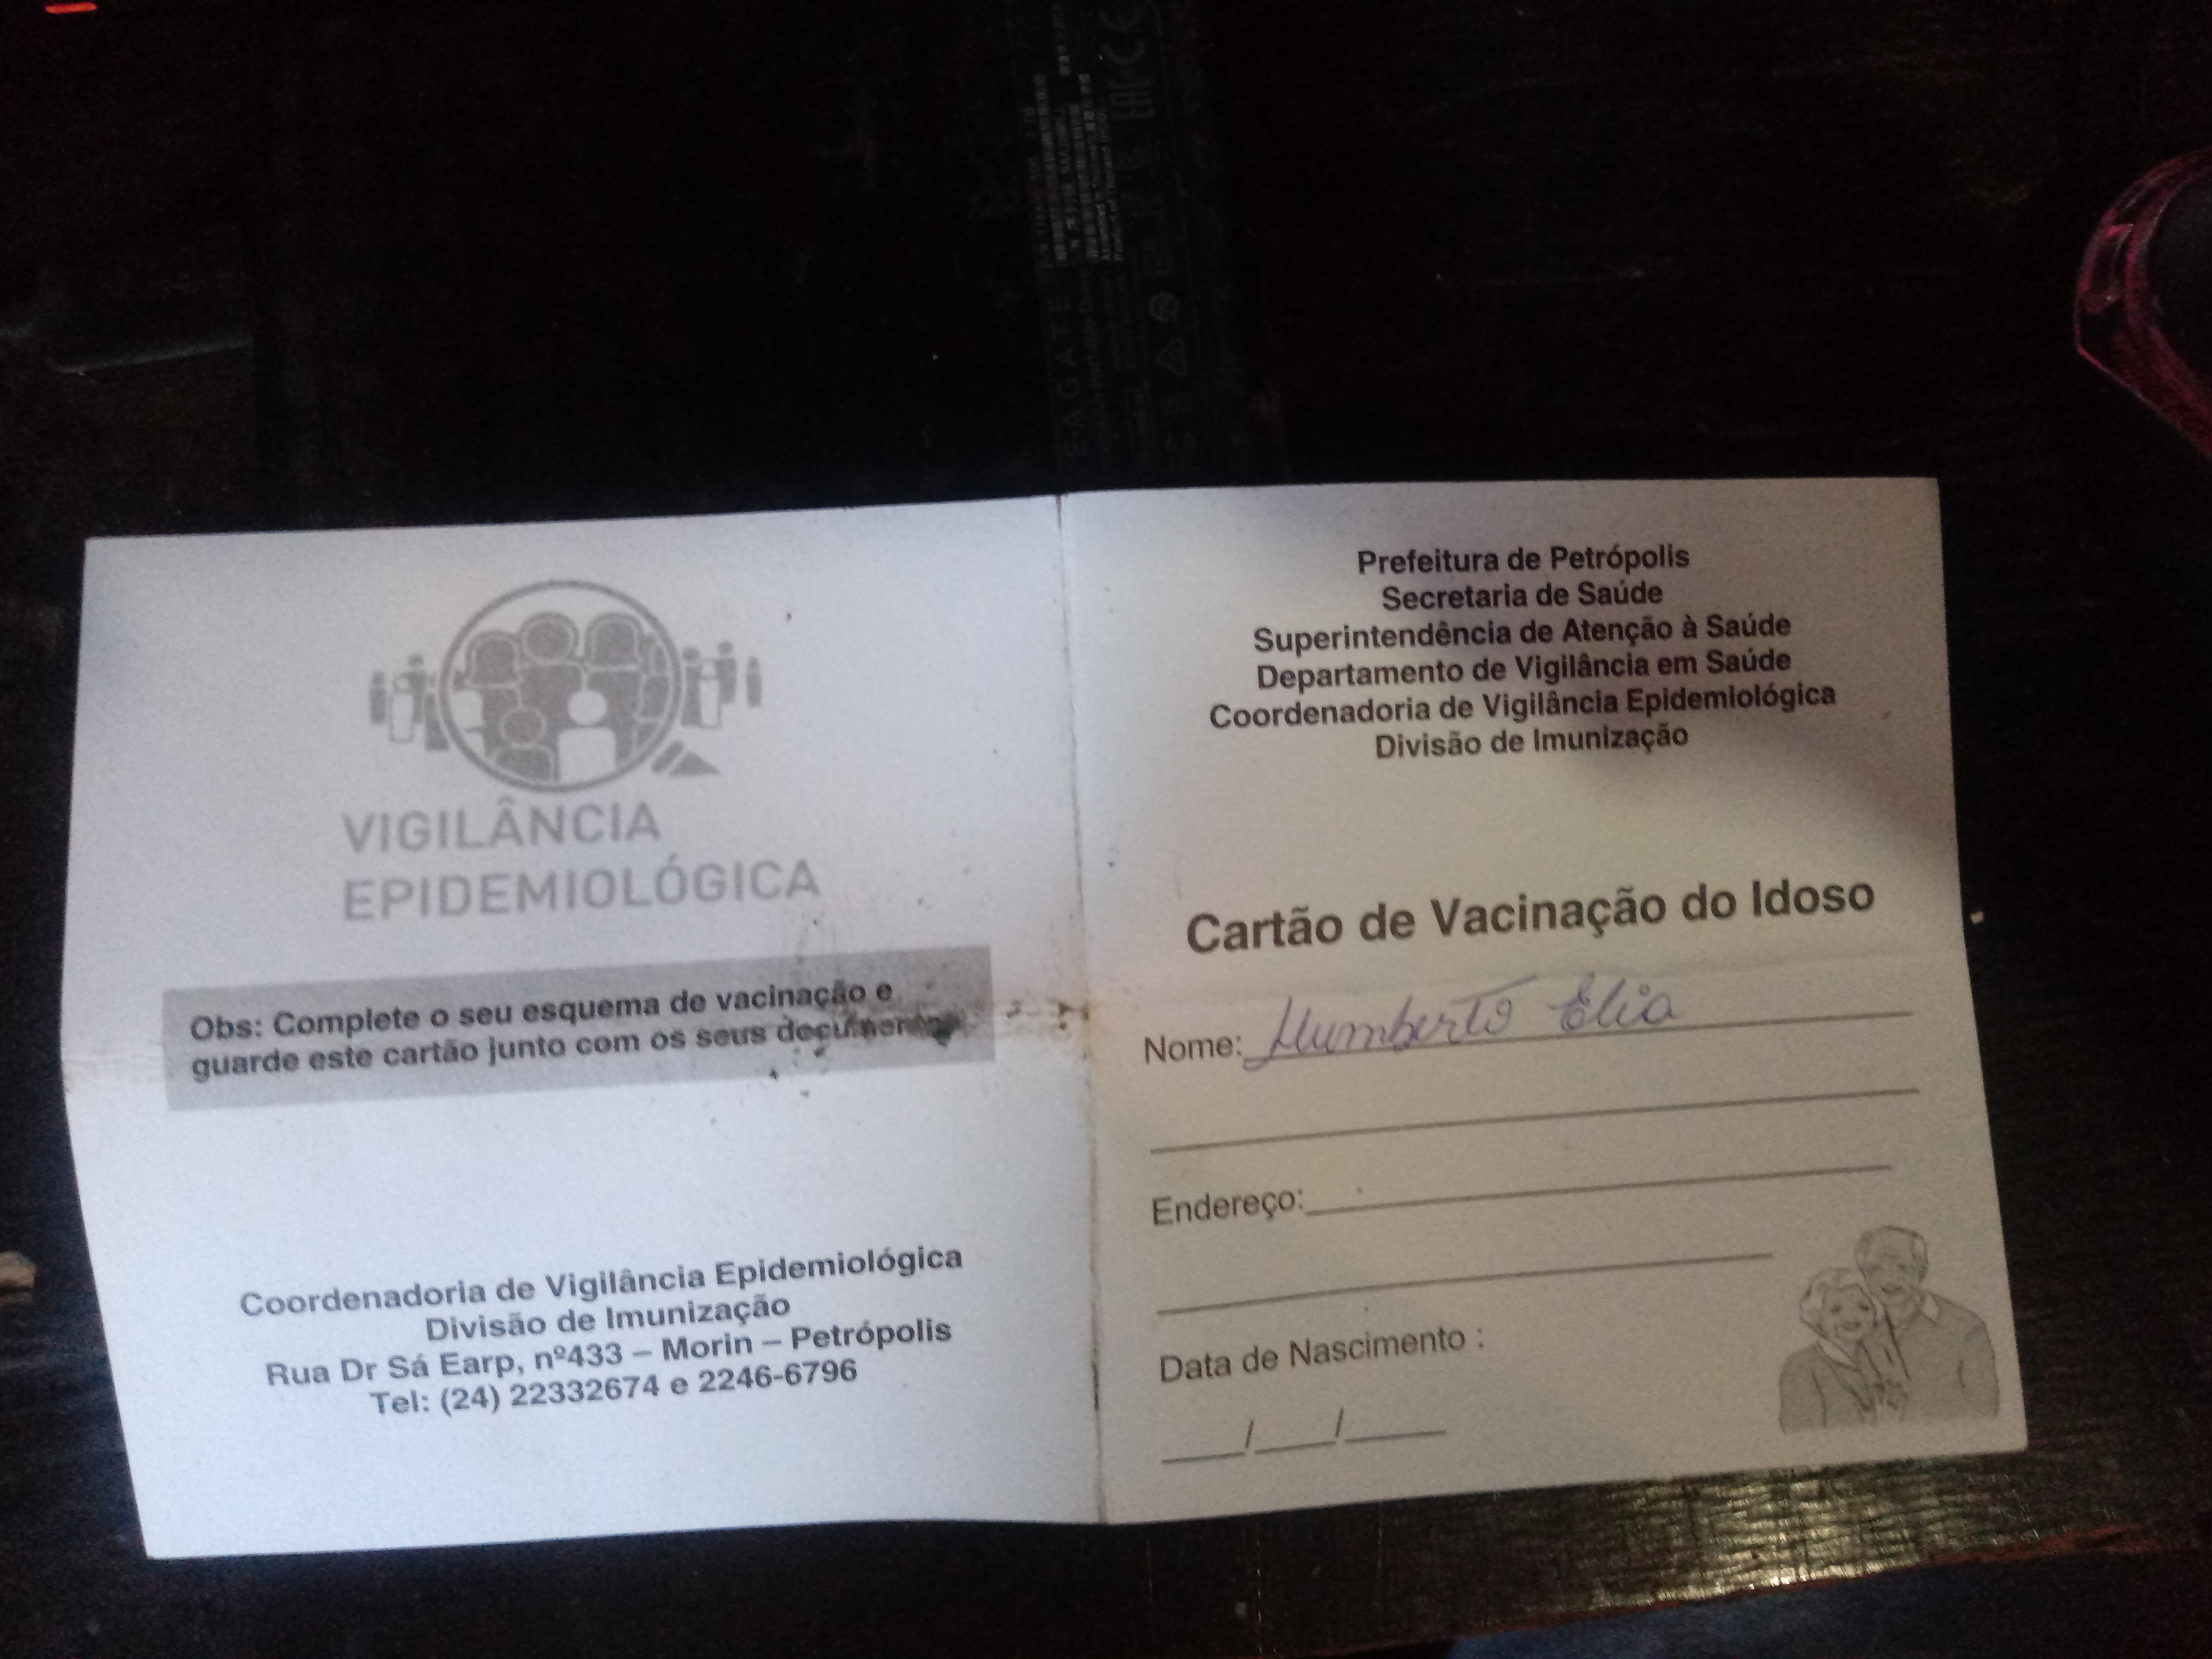 VIGILÂNCIA
EPIDEMIOLÓGICA
Obs: Complete o seu esquema de vacinação e
guarde este cartão junto com os seus documentos
Coordenadoria de Vigilância Epidemiológica
Divisão de Imunização
Rua Dr Sá Earp, nº433 – Morin – Petrópolis
Tel: (24) 22332674 e 2246-6796
Prefeitura de Petrópolis
Secretaria de Saúde
Superintendência de Atenção à Saúde
Departamento de Vigilância em Saúde
Coordenadoria de Vigilância Epidemiológica
Divisão de Imunização
Cartão de Vacinação do Idoso
Nome: Humberto Elia
Endereço:
Data de Nascimento :
___/___/___
EAC CE